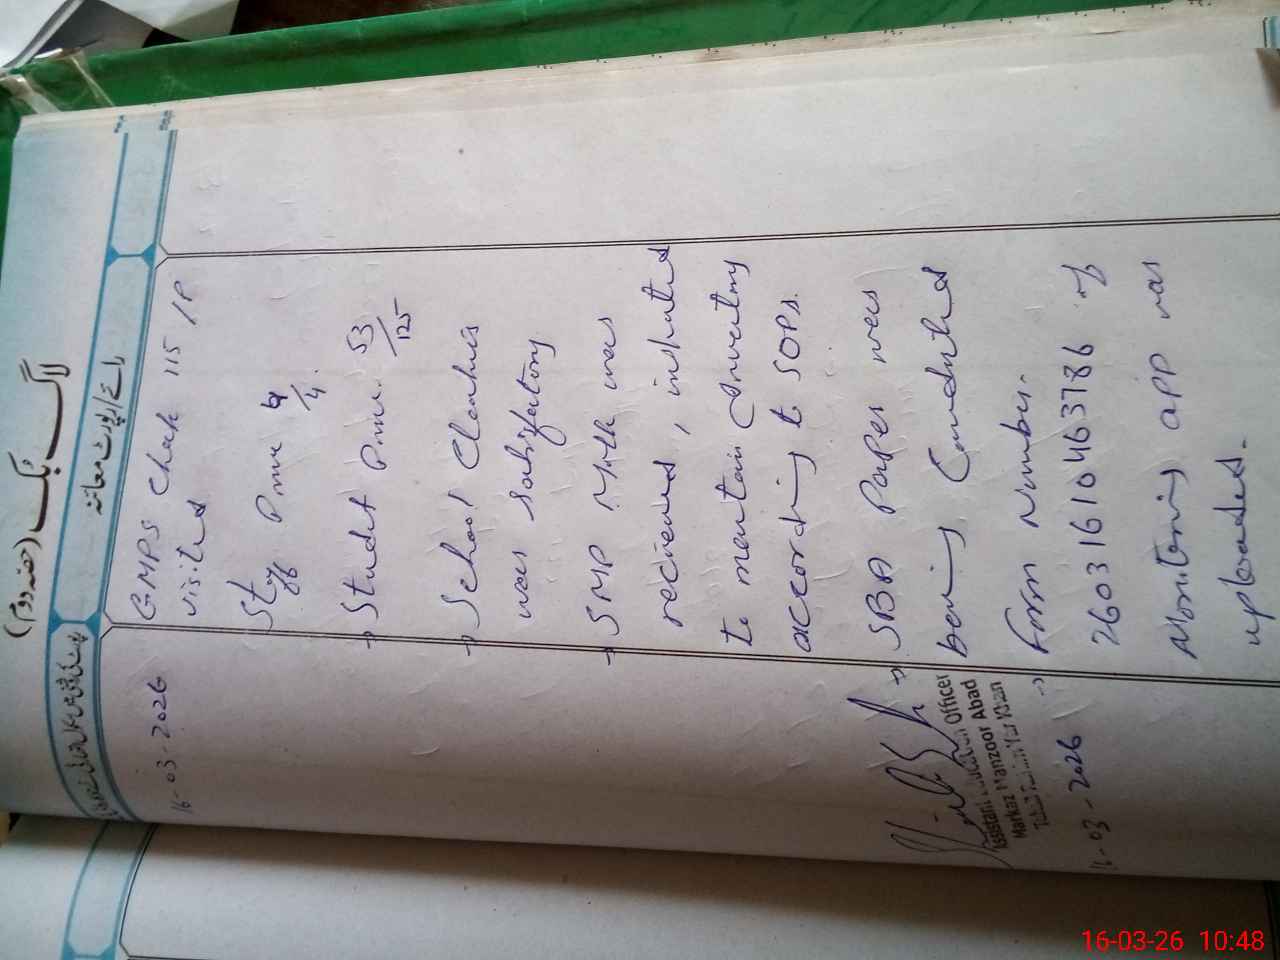 لاگ بک (حصہ دوم)
رائے/رپورٹ معائنہ
16-03-2026
GMPS Chak 115/P
visited
Staff Prnu 4/4.
→ Student Prnu. 53/125
→ School Cleanlis
was satisfactory
→ SMP Milk was
recieved, instructed
to mentain Inventory
according to SOPs.
→ SBA Paper was
being Conducted
→ Form Number.
2603161046 3786 of
Monitoring app was
uploaded.
Assistant Education Officer
Markaz Manzoor Abad
16-03-2026
16-03-26 10:48